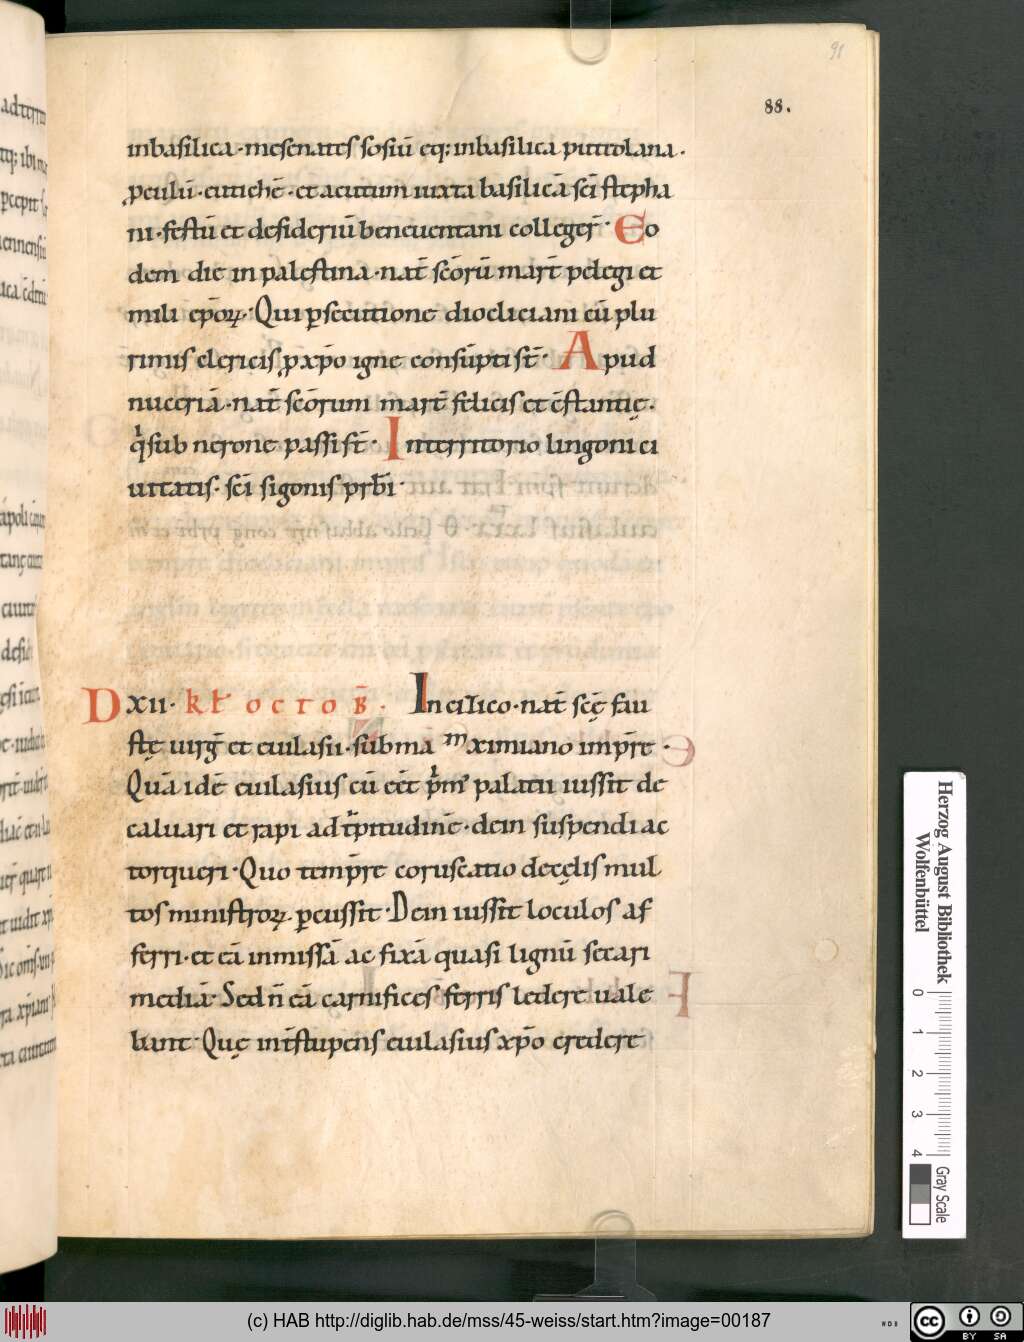 91
88.
inbasilica·mesenates sosiū eq; inbasilica puteolana.
ꝓculū·euticħē·et acutum iuxta basilicā sc̄i stepha
ni·festū et desideriū beneuentani colleger̄· Eo
dem die in palestina·nat̄ sc̄orū mart̄ pelegi et
mili ep̄oꝝ· Qui ꝑsecutione diocliciani cū plu
rimis clericis ꝓ xp̄o igne consūpti st̄· Apud
nuceriā·nat̄ sc̄orum mart̄ felicis et c̄stantię.
qͥ sub nerone passi st̄· Interritorio lingonici
uitatis· sc̄i sigonis prb̄i·
D XII· kł octob̄· In cizico·nat̄ sc̄ę fau
stę uirḡ et euilasii·sub maximiano imp̄re·
Quā idē euilasius cū eēt pͥmꝰ palatii iussit de
caluari et rapi ad tͥpitudinē·dein suspendi ac
torqueri·Quo temp̄re coruscatio decęlis mul
tos ministroꝝ ꝑcussit·Dein iussit loculos af
ferri·et eā inmissā ac fixā quasi lignū secari
mediā· Sed n̄ eā carnifices ferris ledere uale
bant· Quę int̄ stupens euilasius xp̄o credere
Herzog August Bibliothek
Wolfenbüttel
0 1 2 3 4
Gray Scale
(c) HAB http://diglib.hab.de/mss/45-weiss/start.htm?image=00187
WDB
cc BY SA